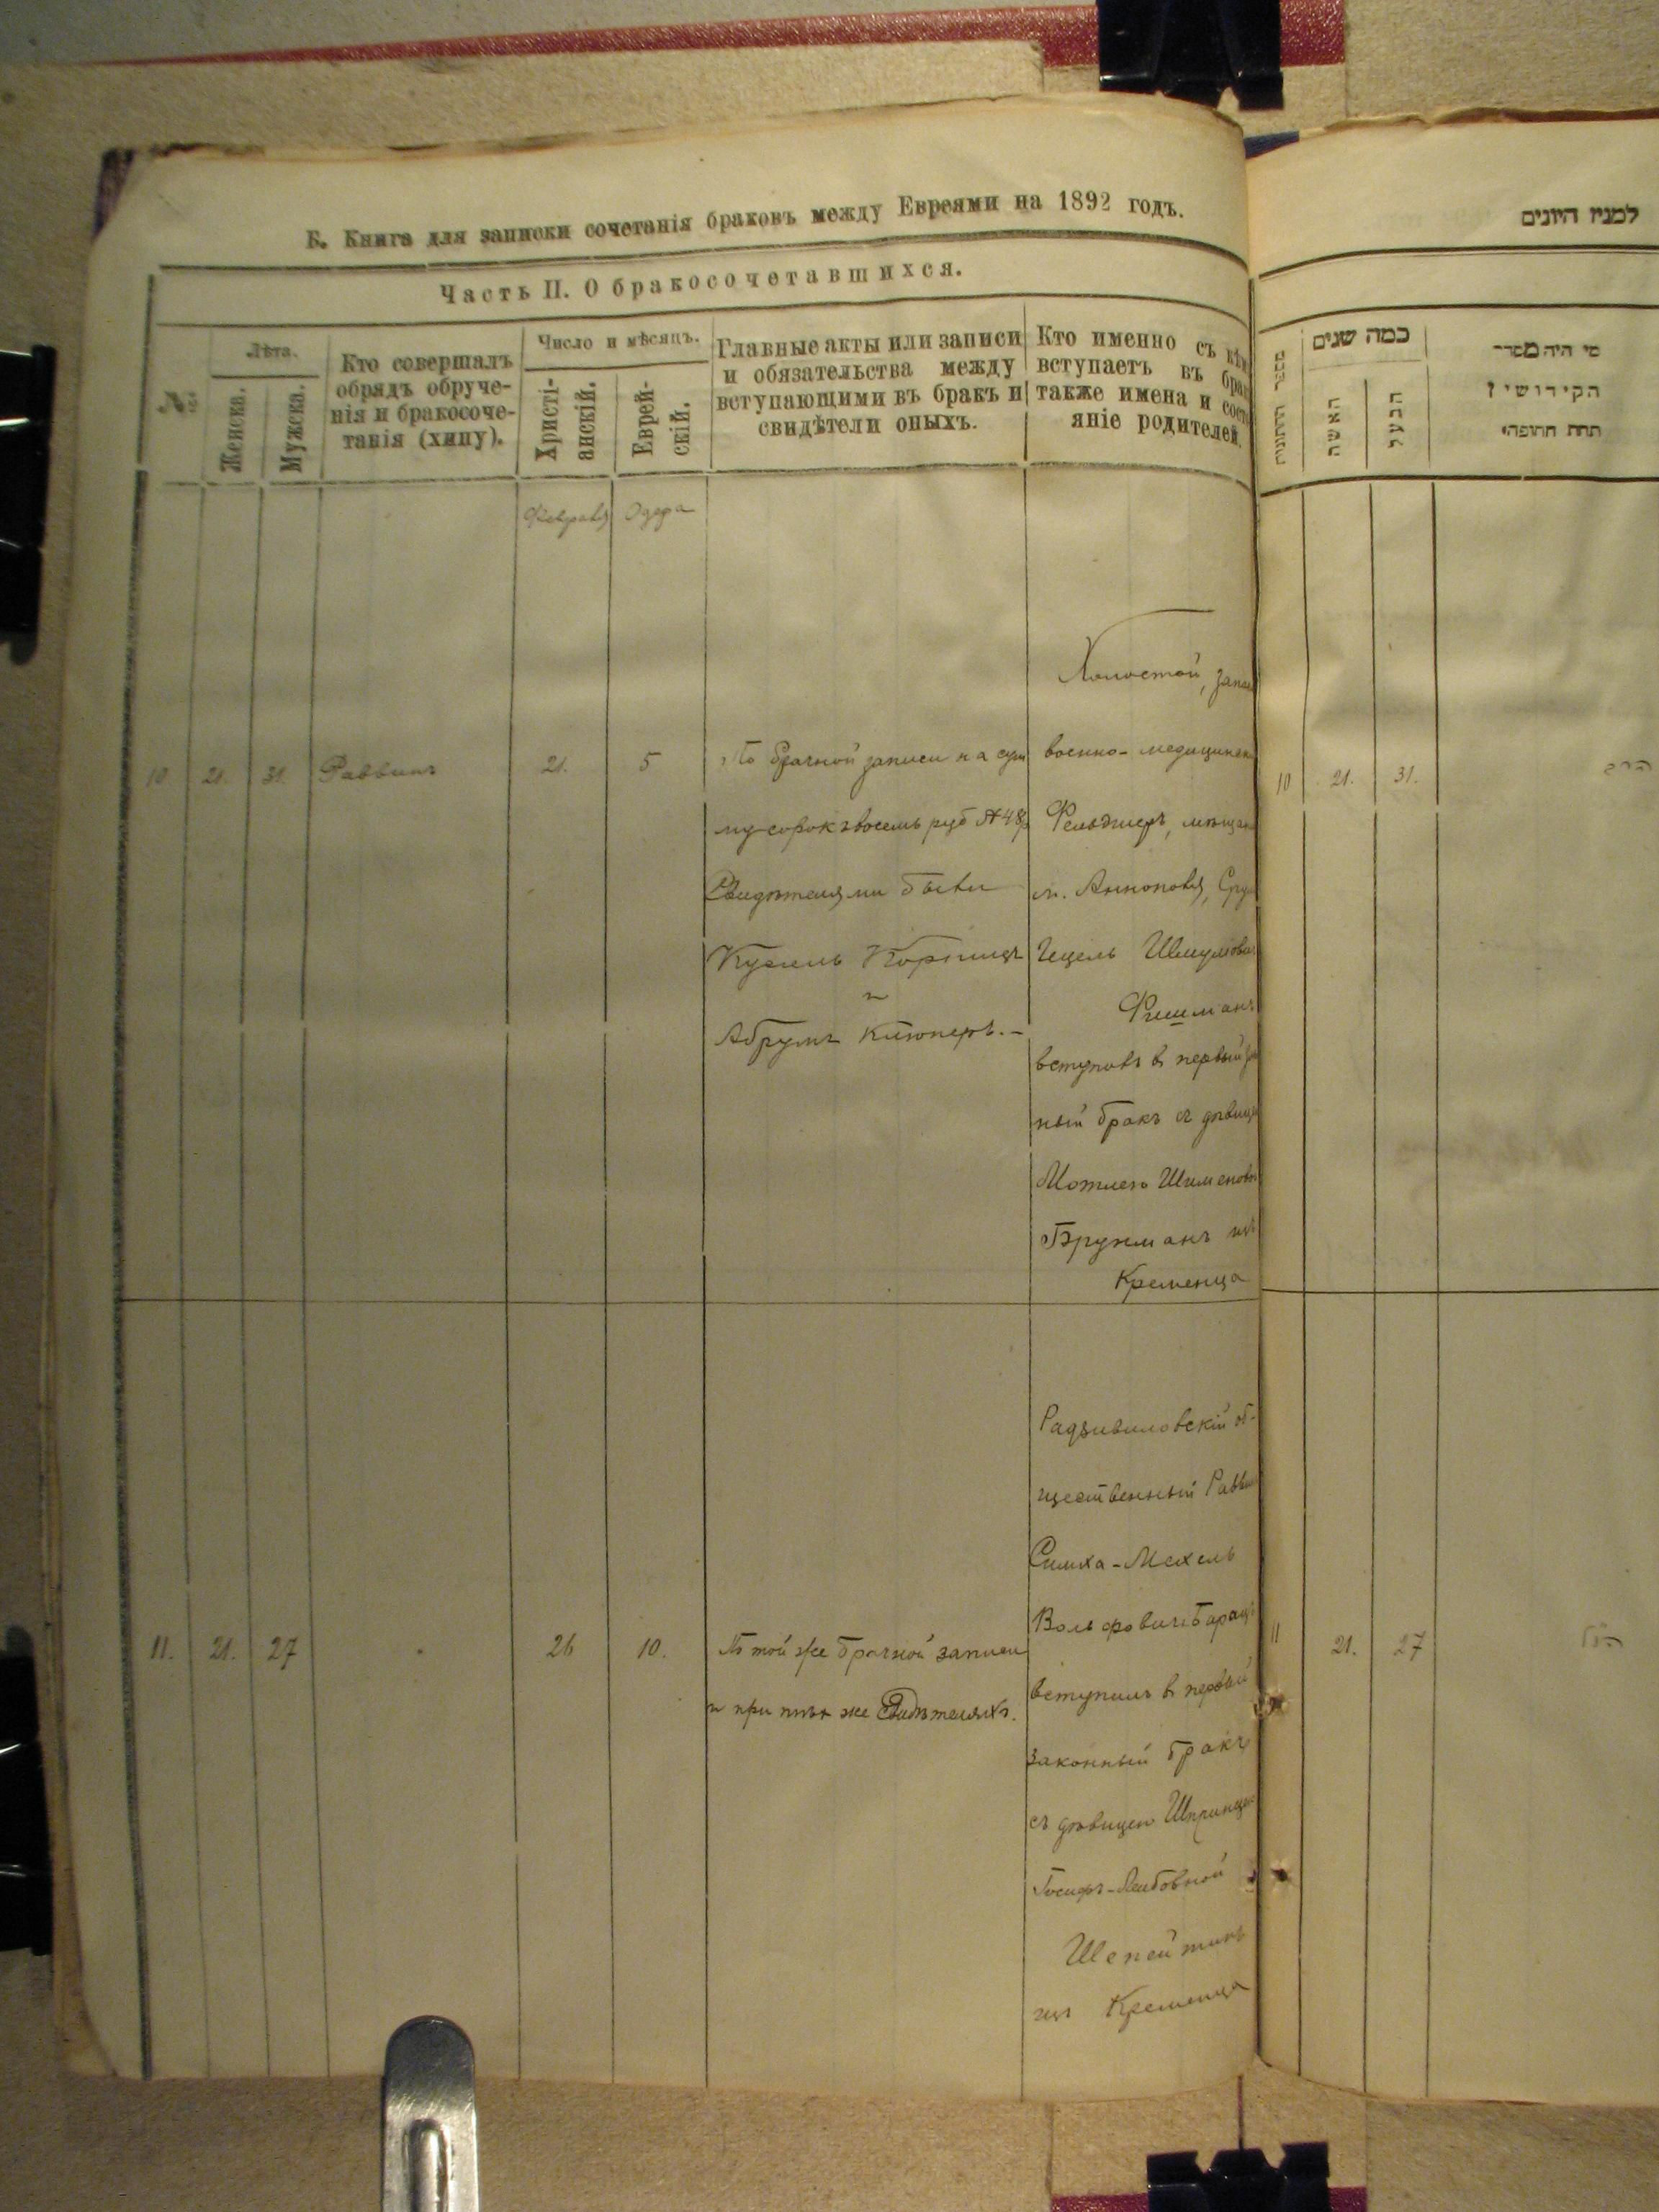 Б. Книга для записки сочетанія браковъ между Евреями на 1892 годъ.
Часть II. О бракосочетавшихся.
№
Лѣта.
Женска.
Мужеска.
Кто совершалъ
обрядъ обруче-
нія и бракосоче-
танія (хипу).
Число и мѣсяцъ.
Христі-
анскій.
Еврей-
скій.
Главные акты или записи
и обязательства между
вступающими въ бракъ и
свидѣтели оныхъ.
Кто именно съ кѣмъ
вступаетъ въ брак
также имена и состо
яніе родителей.
Февраля
Одера
10
21.
31.
Раввинъ
21.
5
По брачной записи на сум
му сорокъ восемь руб 48 р
Свидѣтелями были
Кусель Корницъ
и
Абрумъ Клюперъ.–
Холостой, запас
военно-медицинск
Фельдшеръ, мѣщан
м. Аннополя, Сру
Гецель Шмулов
Фишманъ
вступилъ в первый за
ный бракъ съ дѣвице
Мотлею Шименовн
Брукманъ изъ
Кременца
11.
21.
27
26
10.
По той же брачной записи
и при тѣхъ же Свидѣтеляхъ.
Радзивиловскій об-
щественный Равви
Симха-Мехель
Вольфовичъ Барацъ
вступилъ в первый
законный бракъ
съ дѣвицею Шпринцею
Іосифъ-Лейбовной
Шепейтинъ
изъ Кременца
למנין היונים
כמה שנים
האשה
הבעל
מי היה מסדר
הקידושין
תחת החופה
10
21.
31.
הרב
11
21.
27
הנ"ל